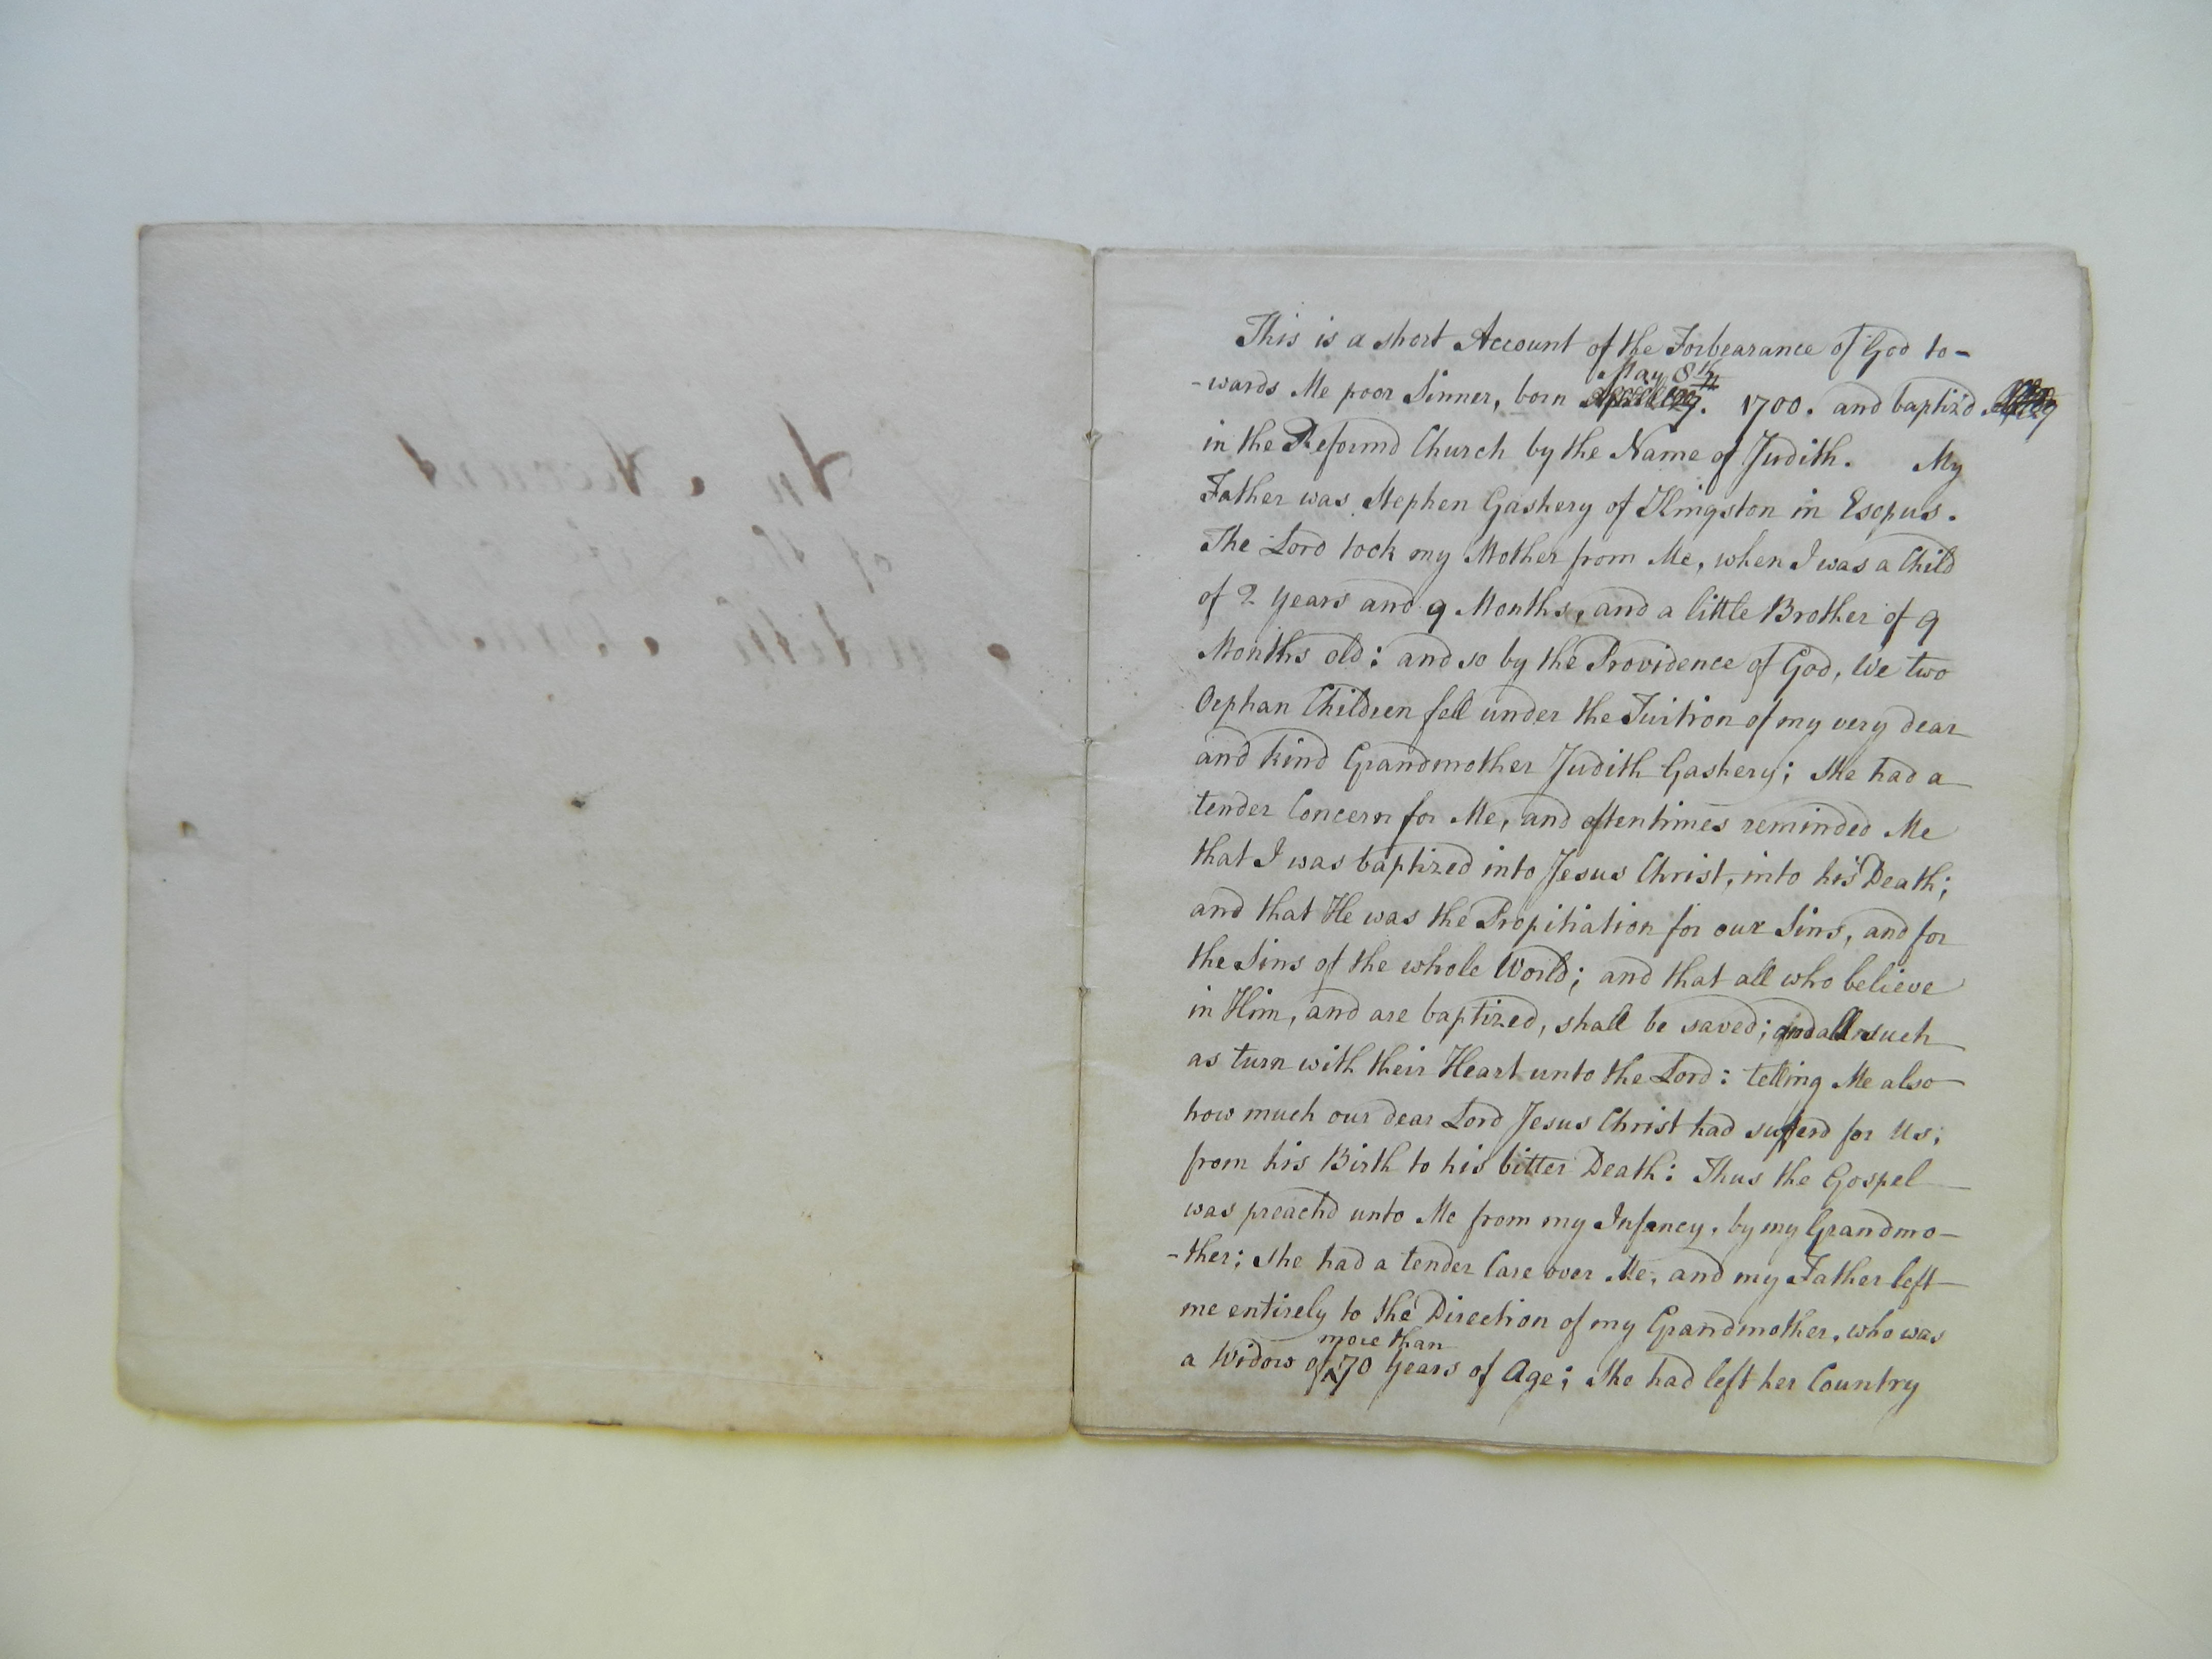 An Account
of the
Judith
This is a short Account of the Forbearance of God to-
May 8th
-wards Me poor Sinner, born 1700. and baptiz'd
in the Reformd Church by the Name of Judith. My
Father was Stephen Gashery of Kingston in Esopus.
The Lord took my Mother from Me, when I was a Child
of 2 Years and 9 Months, and a little Brother of 9
Months old: and so by the Providence of God, We two
Orphan Children fell under the Tuition of my very dear
and kind Grandmother Judith Gashery; She had a
tender Concern for Me, and oftentimes reminded Me
that I was baptized into Jesus Christ, into his Death;
and that He was the Propitiation for our Sins, and for
the Sins of the whole World; and that all who believe
in Him, and are baptized, shall be saved; and all such
as turn with their Heart unto the Lord: telling Me also
how much our dear Lord Jesus Christ had sufferd for Us,
from his Birth to his bitter Death: Thus the Gospel
was preach'd unto Me from my Infancy, by my Grandmo-
-ther; She had a tender Care over Me, and my Father left
me entirely to the Direction of my Grandmother, who was
more than
a Widow of 70 Years of Age; She had left her Country